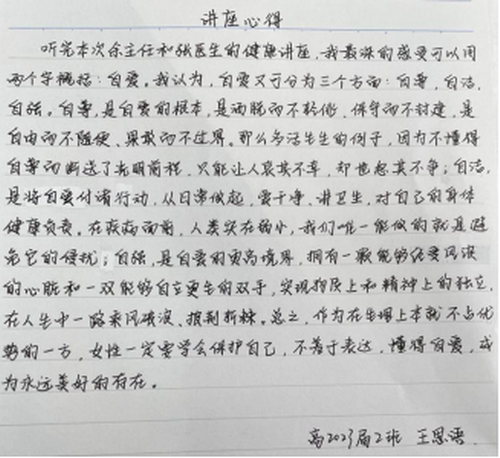 讲座心得
听完本次余主任和张医生的健康讲座，我最深的感受可以用
两个字概括：自爱。我认为，自爱又可分为三个方面：自尊，自洁，
自强。自尊，是自爱的根本，是洒脱而不轻佻，保守而不封建，是
自由而不随便，果敢而不过界。那么多活生生的例子，因为不懂得
自尊而断送了光明前程，只能让人哀其不幸，却也怒其不争；自洁，
是将自爱付诸行动，从日常做起，爱干净、讲卫生，对自己的身体
健康负责。在疾病面前，人类实在弱小，我们唯一能做的就是避
免它的侵扰；自强，是自爱的更高境界，拥有一颗能够经受风浪
的心脏和一双能够自立更生的双手，实现物质上和精神上的独立，
在人生中一路乘风破浪、披荆斩棘。总之，作为在生理上本就不占优
势的一方，女性一定要学会保护自己，不羞于表达，懂得自爱，成
为永远美好的存在。
高2023届2班 王思语